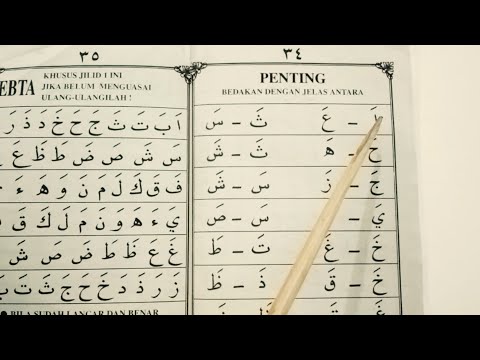 ٣٤
PENTING
BEDAKAN DENGAN JELAS ANTARA
اَ – عَ ثَ – سَ
حَ – هَ ثَ – شَ
جَ – زَ سَ – شَ
يَ – سَ – صَ
خَ – غَ تَ – طَ
خَ – قَ ذَ – ظَ
٣٥
EBTA
KHUSUS JILID 1 INI
JIKA BELUM MENGUASAI
ULANG-ULANGILAH !
اَ بَ تَ ثَ جَ حَ خَ دَ ذَ رَ
سَ شَ صَ ضَ طَ ظَ عَ
فَ قَ كَ لَ مَ نَ وَ هَ ءَ
يَ ءَ هَ وَ نَ مَ لَ كَ قَ
غَ عَ ظَ طَ ضَ صَ شَ
زَ رَ ذَ دَ خَ حَ جَ ثَ تَ بَ
● BILA SUDAH LANCAR DAN BENAR